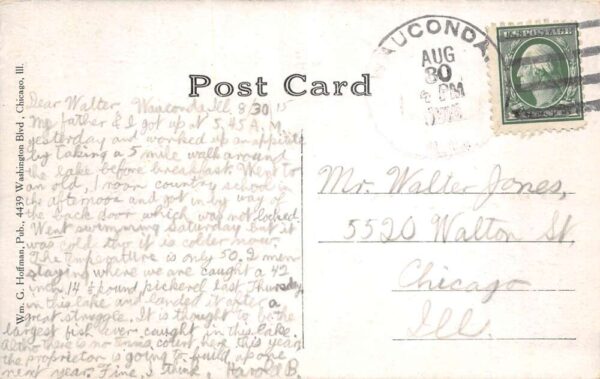 Wm. G. Hoffman, Pub., 4439 Washington Blvd., Chicago, Ill.
Post Card
WAUCONDA
AUG
30
PM
U.S. POSTAGE
Dear Walter Wauconda Ill 8/30/15
My father & I got up at 5,45 A.M.
yesterday and worked up an appetite
by taking a 5 mile walk around
the lake before breakfast. Went to
an old, 1 room country school in
the afternoon and got in by way of
the back door which was not locked.
Went swimming Saturday but it
was cold tho it is colder now.
The temperature is only 50. 2 men
staying where we are caught a 42
inch, 14 ½ pound pickerel last Thursday
in this lake and landed it after a
great struggle. It is thought to be the
largest fish ever caught in this lake.
Altho there is no tennis court here this year
the proprietor is going to build up one
next year. Fine, I think, Harold B.
Mr. Walter Jones,
5520 Walton St
Chicago
Ill.